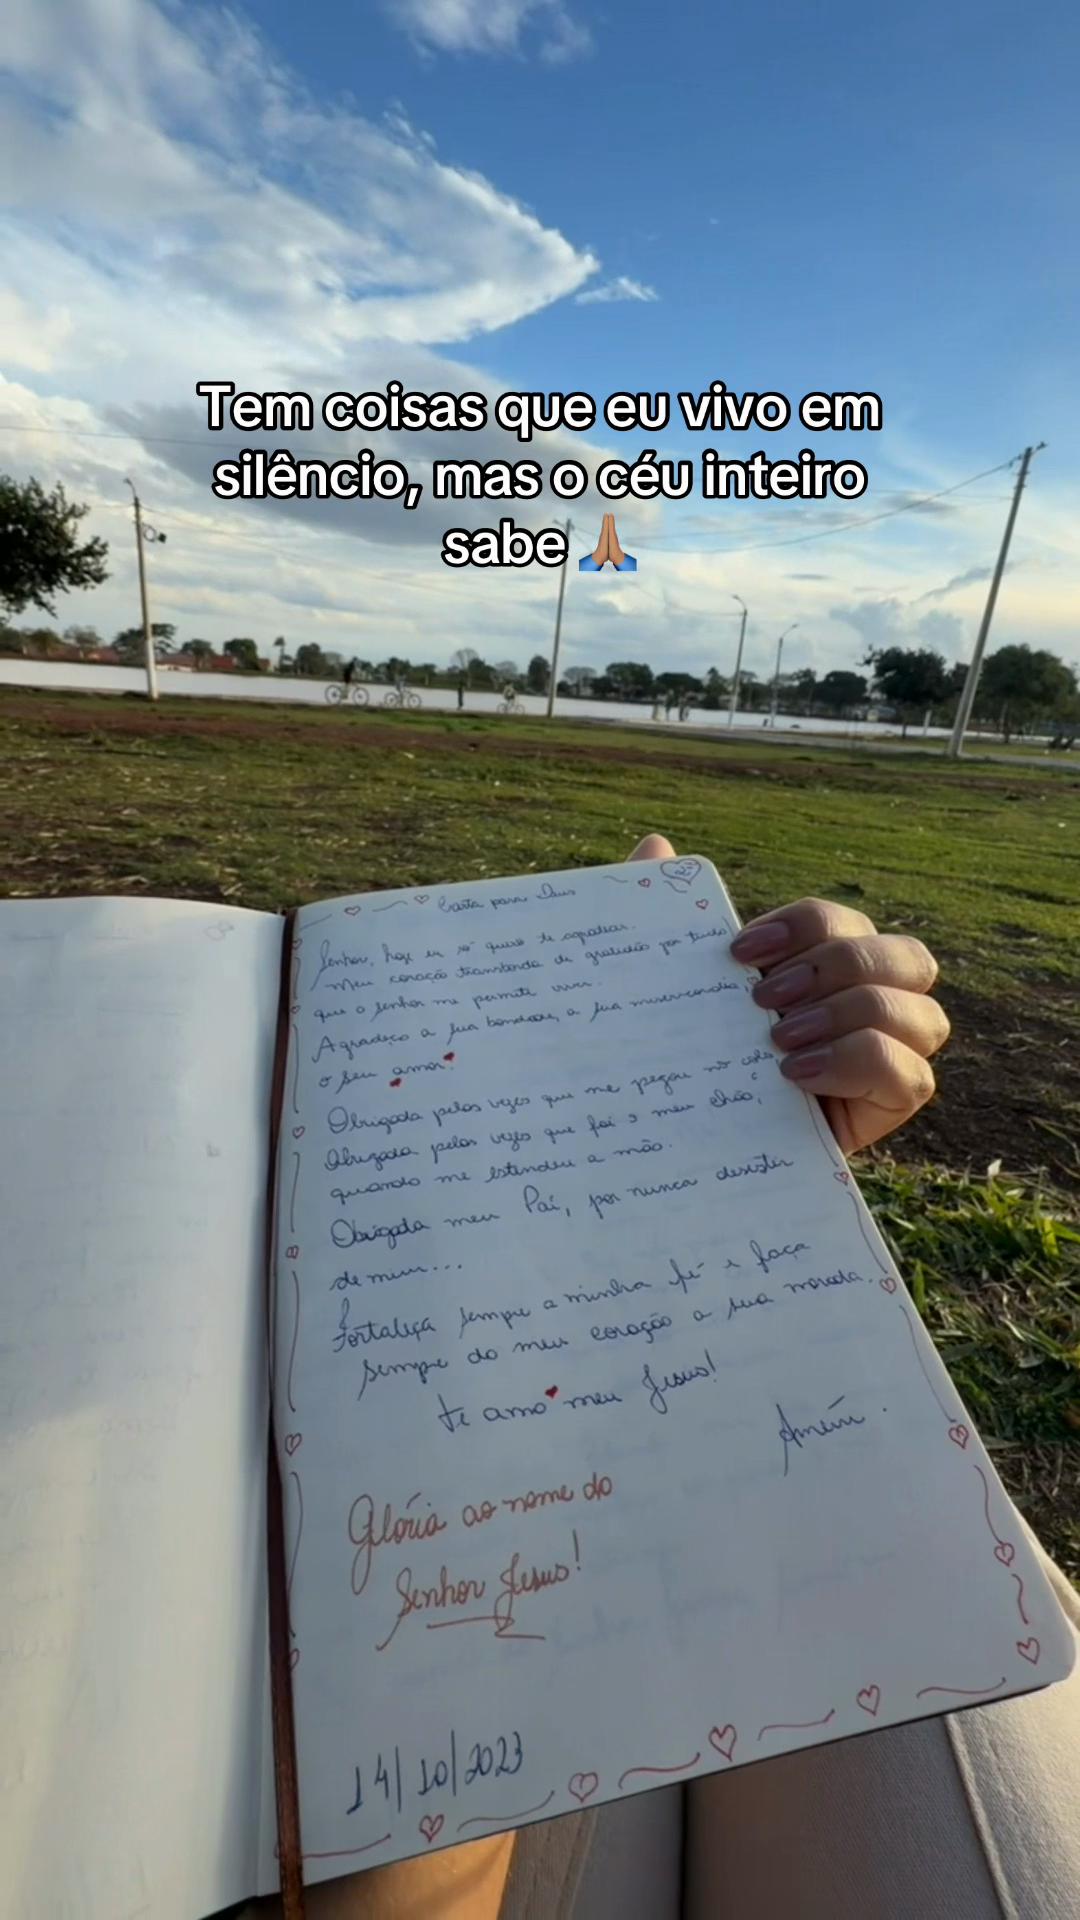 Tem coisas que eu vivo em
silêncio, mas o céu inteiro
sabe 🙏🏽
Carta para Deus
Senhor, hoje eu só quero te agradecer.
Meu coração transborda de gratidão por tudo
que o senhor me permite viver.
Agradeço a sua bondade, a sua misericórdia,
o seu amor!
Obrigada pelas vezes que me pegou no colo,
Obrigada pelas vezes que foi o meu chão,
quando me estendeu a mão.
Obrigada meu Pai, por nunca desistir
de mim...
Fortaleça sempre a minha fé e faça
sempre do meu coração a sua morada.
te amo meu Jesus!
Amém.
Glória ao nome do
Senhor Jesus!
14/10/2023